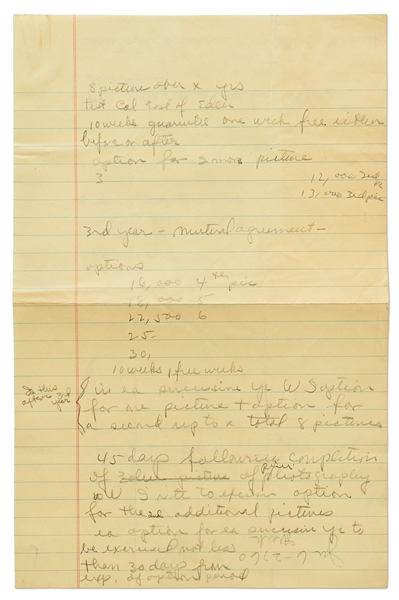 8 picture over x yrs
10 weeks guarantee one week free either
before or after
option for 2 more picture
3
12,000 3rd
13,000 3rd pic
3rd year - mutual agreement -
options
16,000 4th pic
18,000 5
22,500 6
25-
30,
10 weeks, free weeks
Is this
after 3rd
year
in ea successive yr W S option
for one picture + option for
a second up to a total 8 pictures
45 days following completion
of picture of prin. photography
W S option
for these additional pictures
ea option for ea successive yr to
be exercised not less
than 30 days from
exp. of option period